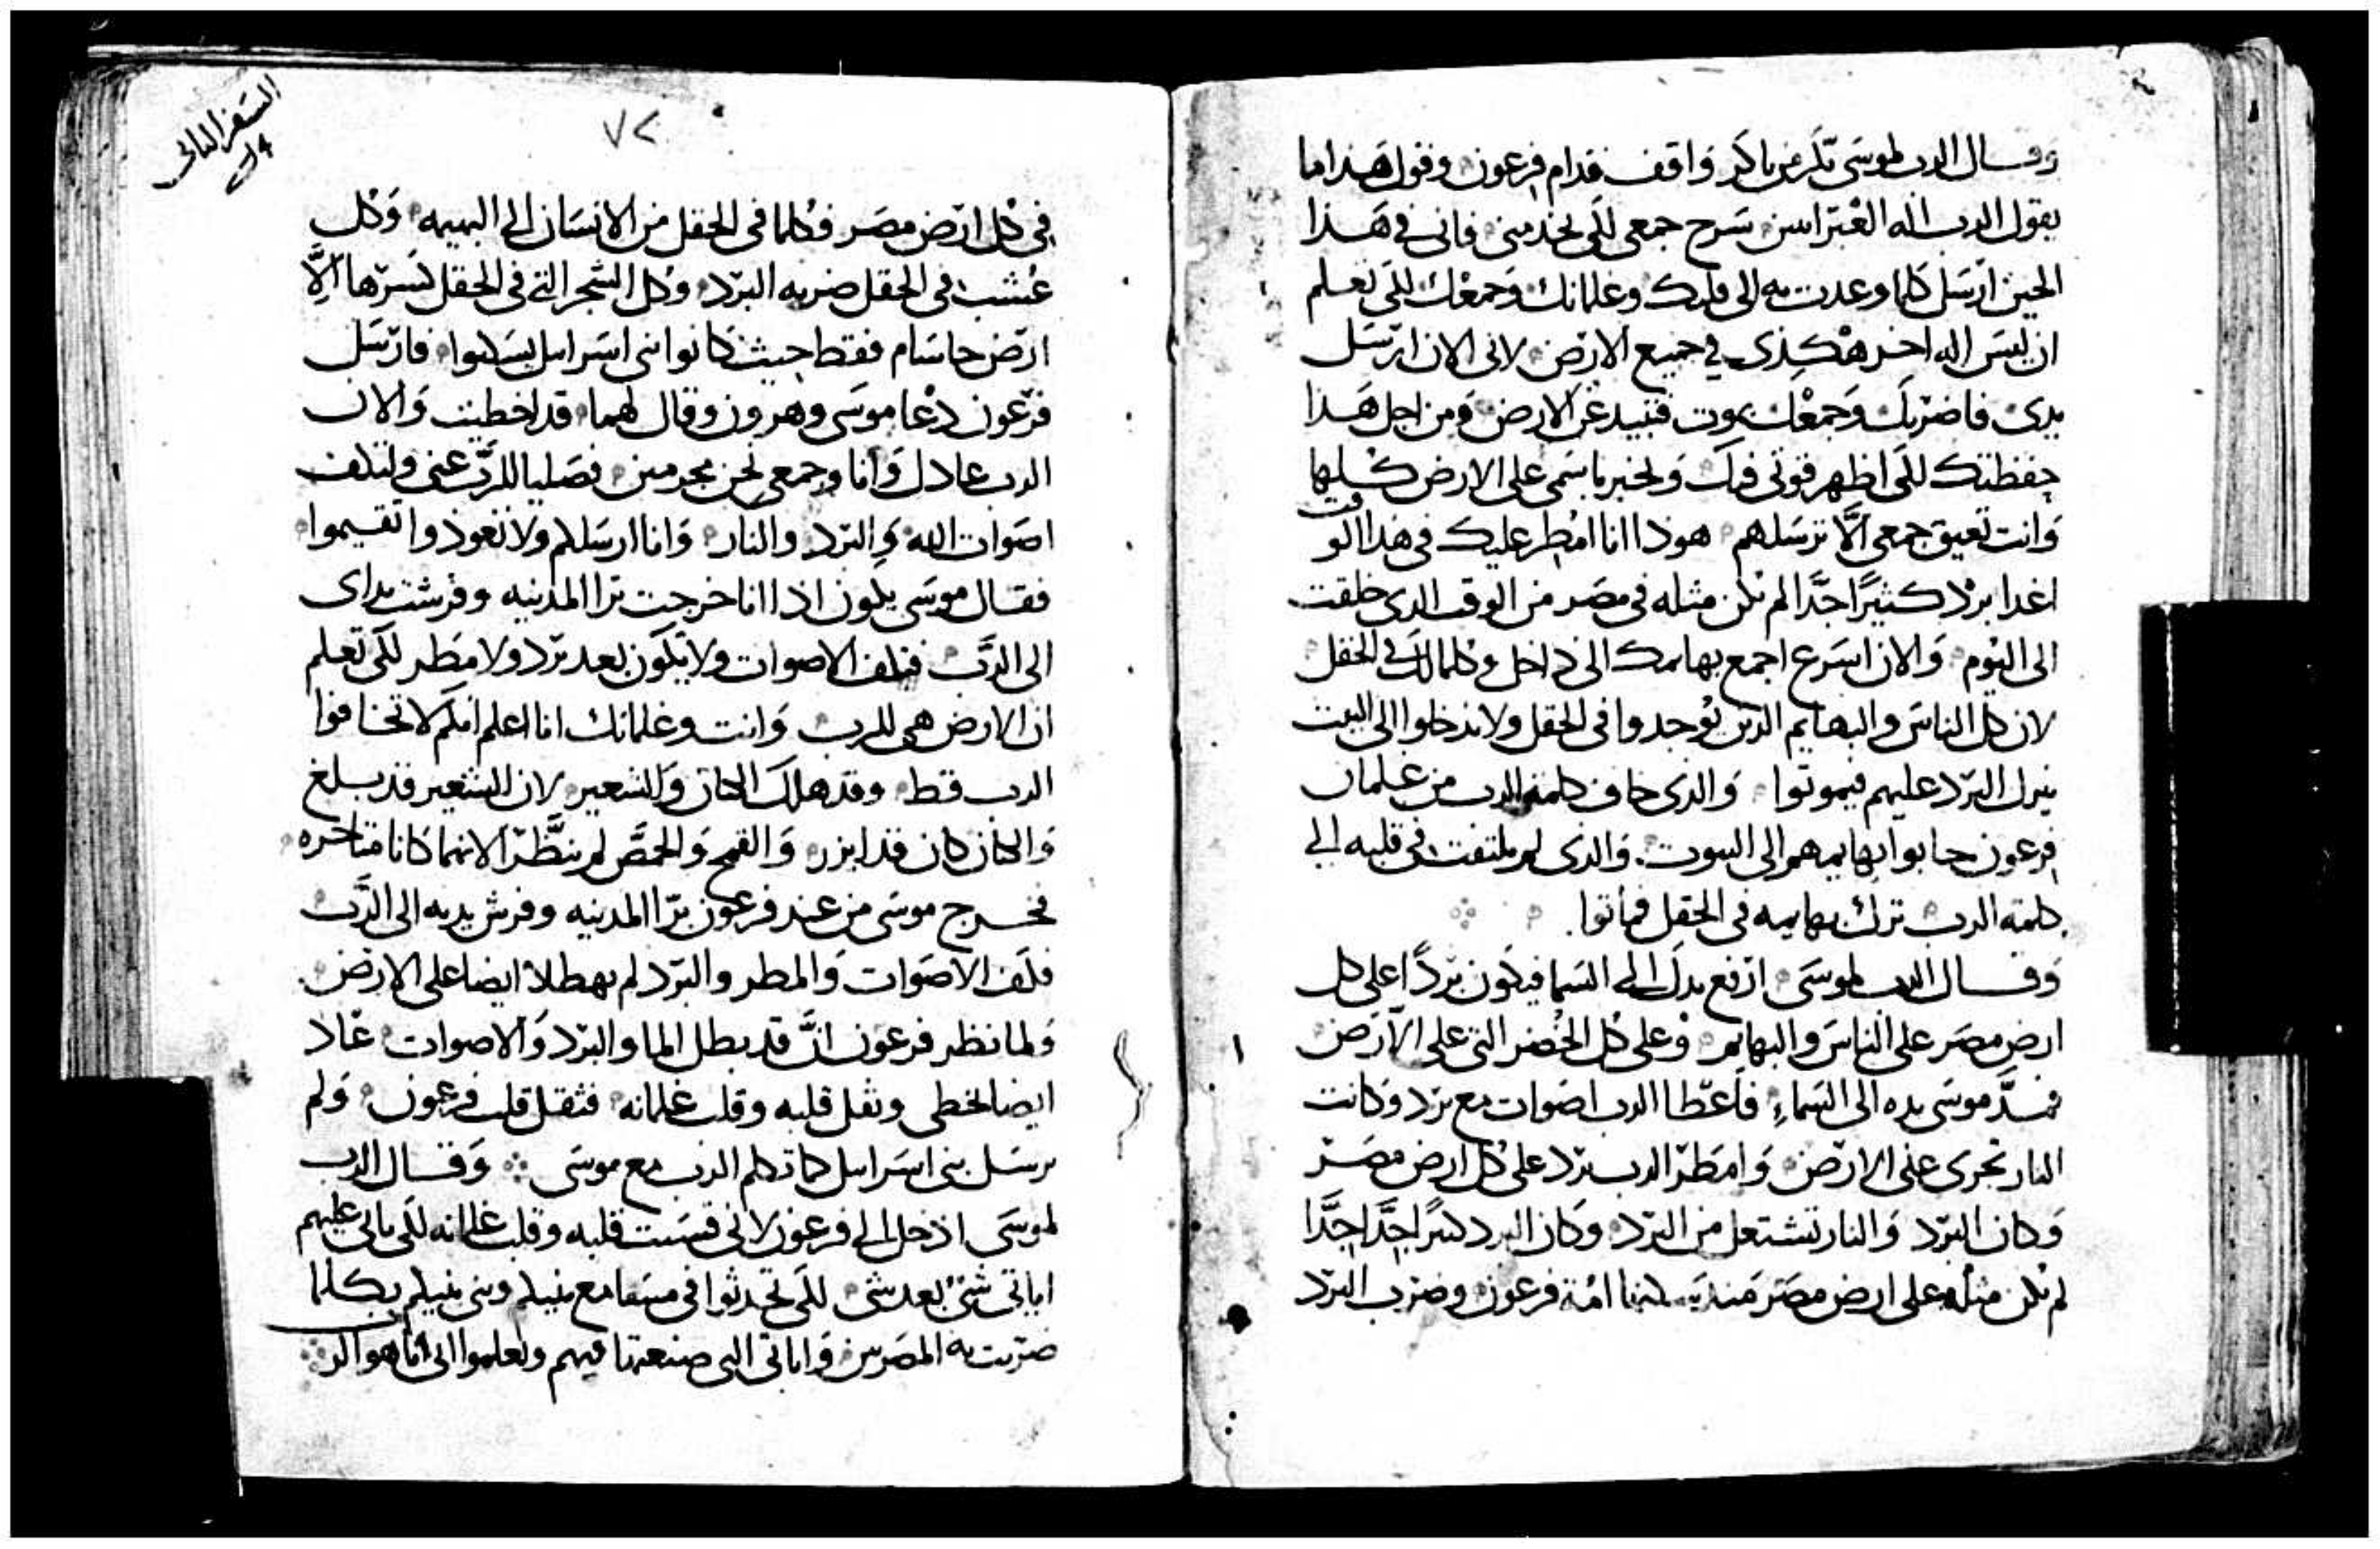 وقال الرب لموسى بكر من باكر واقف قدام فرعون وقول هذا ما
يقول الرب اله العبرانيين سرح جمعي لكي يخدمني فاني في هذا
الحين ارسل كلما وعدت به الى قلبك وغلمانك وجمعك لكي تعلم
ان ليس اله اخر هكذى في جميع الارض لاني الان ارسل
يدى فاضربك وجمعك بموت فتبيد عن الارض ومن اجل هذا
حفظتك لكى اظهر قوتي فيك ويخبر باسمى على الارض كليها
وانت تعيق جمعي الا ترسلهم هوذا انا امطر عليك في هذا الوقت
اغدا بردا كثيرا جدا لم يكن مثله في مصر من الوقت الدى خلقت
الى اليوم والان اسرع اجمع بهايمك الى داخل وكلما لك في الحقل
لان كل الناس والبهايم الدين يوجدوا في الحقل ولا يدخلوا الى البيت
ينزل البرد عليهم فيموتوا والدى خاف كلمة الرب من غلمان
فرعون جابوا بهايمهم الى البيوت والدى لم يلتفت في قلبه الى
كلمة الرب ترك بهايمه في الحقل فماتوا
وقال الرب لموسى ارفع يدك الى السما فيكون بردا على كل
ارض مصر على الناس والبهايم وعلى كل الخضر التي على الارض
فمد موسى يده الى السماء فاعطا الرب اصوات مع برد وكانت
النار تجرى على الارض وامطر الرب برد على كل ارض مصر
وكان البرد والنار تشتعل من البرد وكان البرد كثيرا جدا جدا
لم يكن مثله على ارض مصر منذ امة فرعون وضرب البرد
السفر الثاني
٧٢
في كل ارض مصر فكلما في الحقل من الانسان الى البهيمه وكل
عشب في الحقل ضربه البرد وكل الشجر التي في الحقل كسرها الا
ارض جاسام فقط حيث كانوا بني اسرايل يسكنوا فارسل
فرعون دعا موسى وهرون وقال لهما قد اخطيت والان
الرب عادل وانا وجمعي نحن مجرمين فصليا للرب عني ولتكف
اصوات الله والبرد والنار وانا ارسلكم ولا تعودوا تقيموا
فقال موسى يكون اذا انا خرجت برا المدينه وفرشت يداى
الى الرب فتكف الاصوات ولا يكون بعد برد ولا مطر لكى تعلم
ان الارض هي للرب وانت وغلمانك انا اعلم انكم لا تخافوا
الرب قط وقد هلك الكتان والشعير لان الشعير قد بلغ
والكتان كان قد ابزر والقمح والحمص لم ينظرا لانهما كانا متاخره
فخرج موسى من عند فرعون برا المدينه وفرش يديه الى الرب
فكف الاصوات والمطر والبرد لم يهطلا ايضا على الارض
ولما نظر فرعون ان قد بطل الما والبرد والاصوات عاد
ايضا لخطى وثقل قلبه وقلب غلمانه فثقل قلب فرعون ولم
يرسل بني اسرايل كما تكلم الرب مع موسى وقال الرب
لموسى ادخل الى فرعون لاني قسيت قلبه وقلب غلمانه لكي ياتي عليهم
اياتي شي بعد شي لكي تحدثوا في مسامع بنيكم وبني بنيكم بكلما
ضربت به المصريين واياتي التي صنعتها فيهم وتعلموا اني انا هو الرب